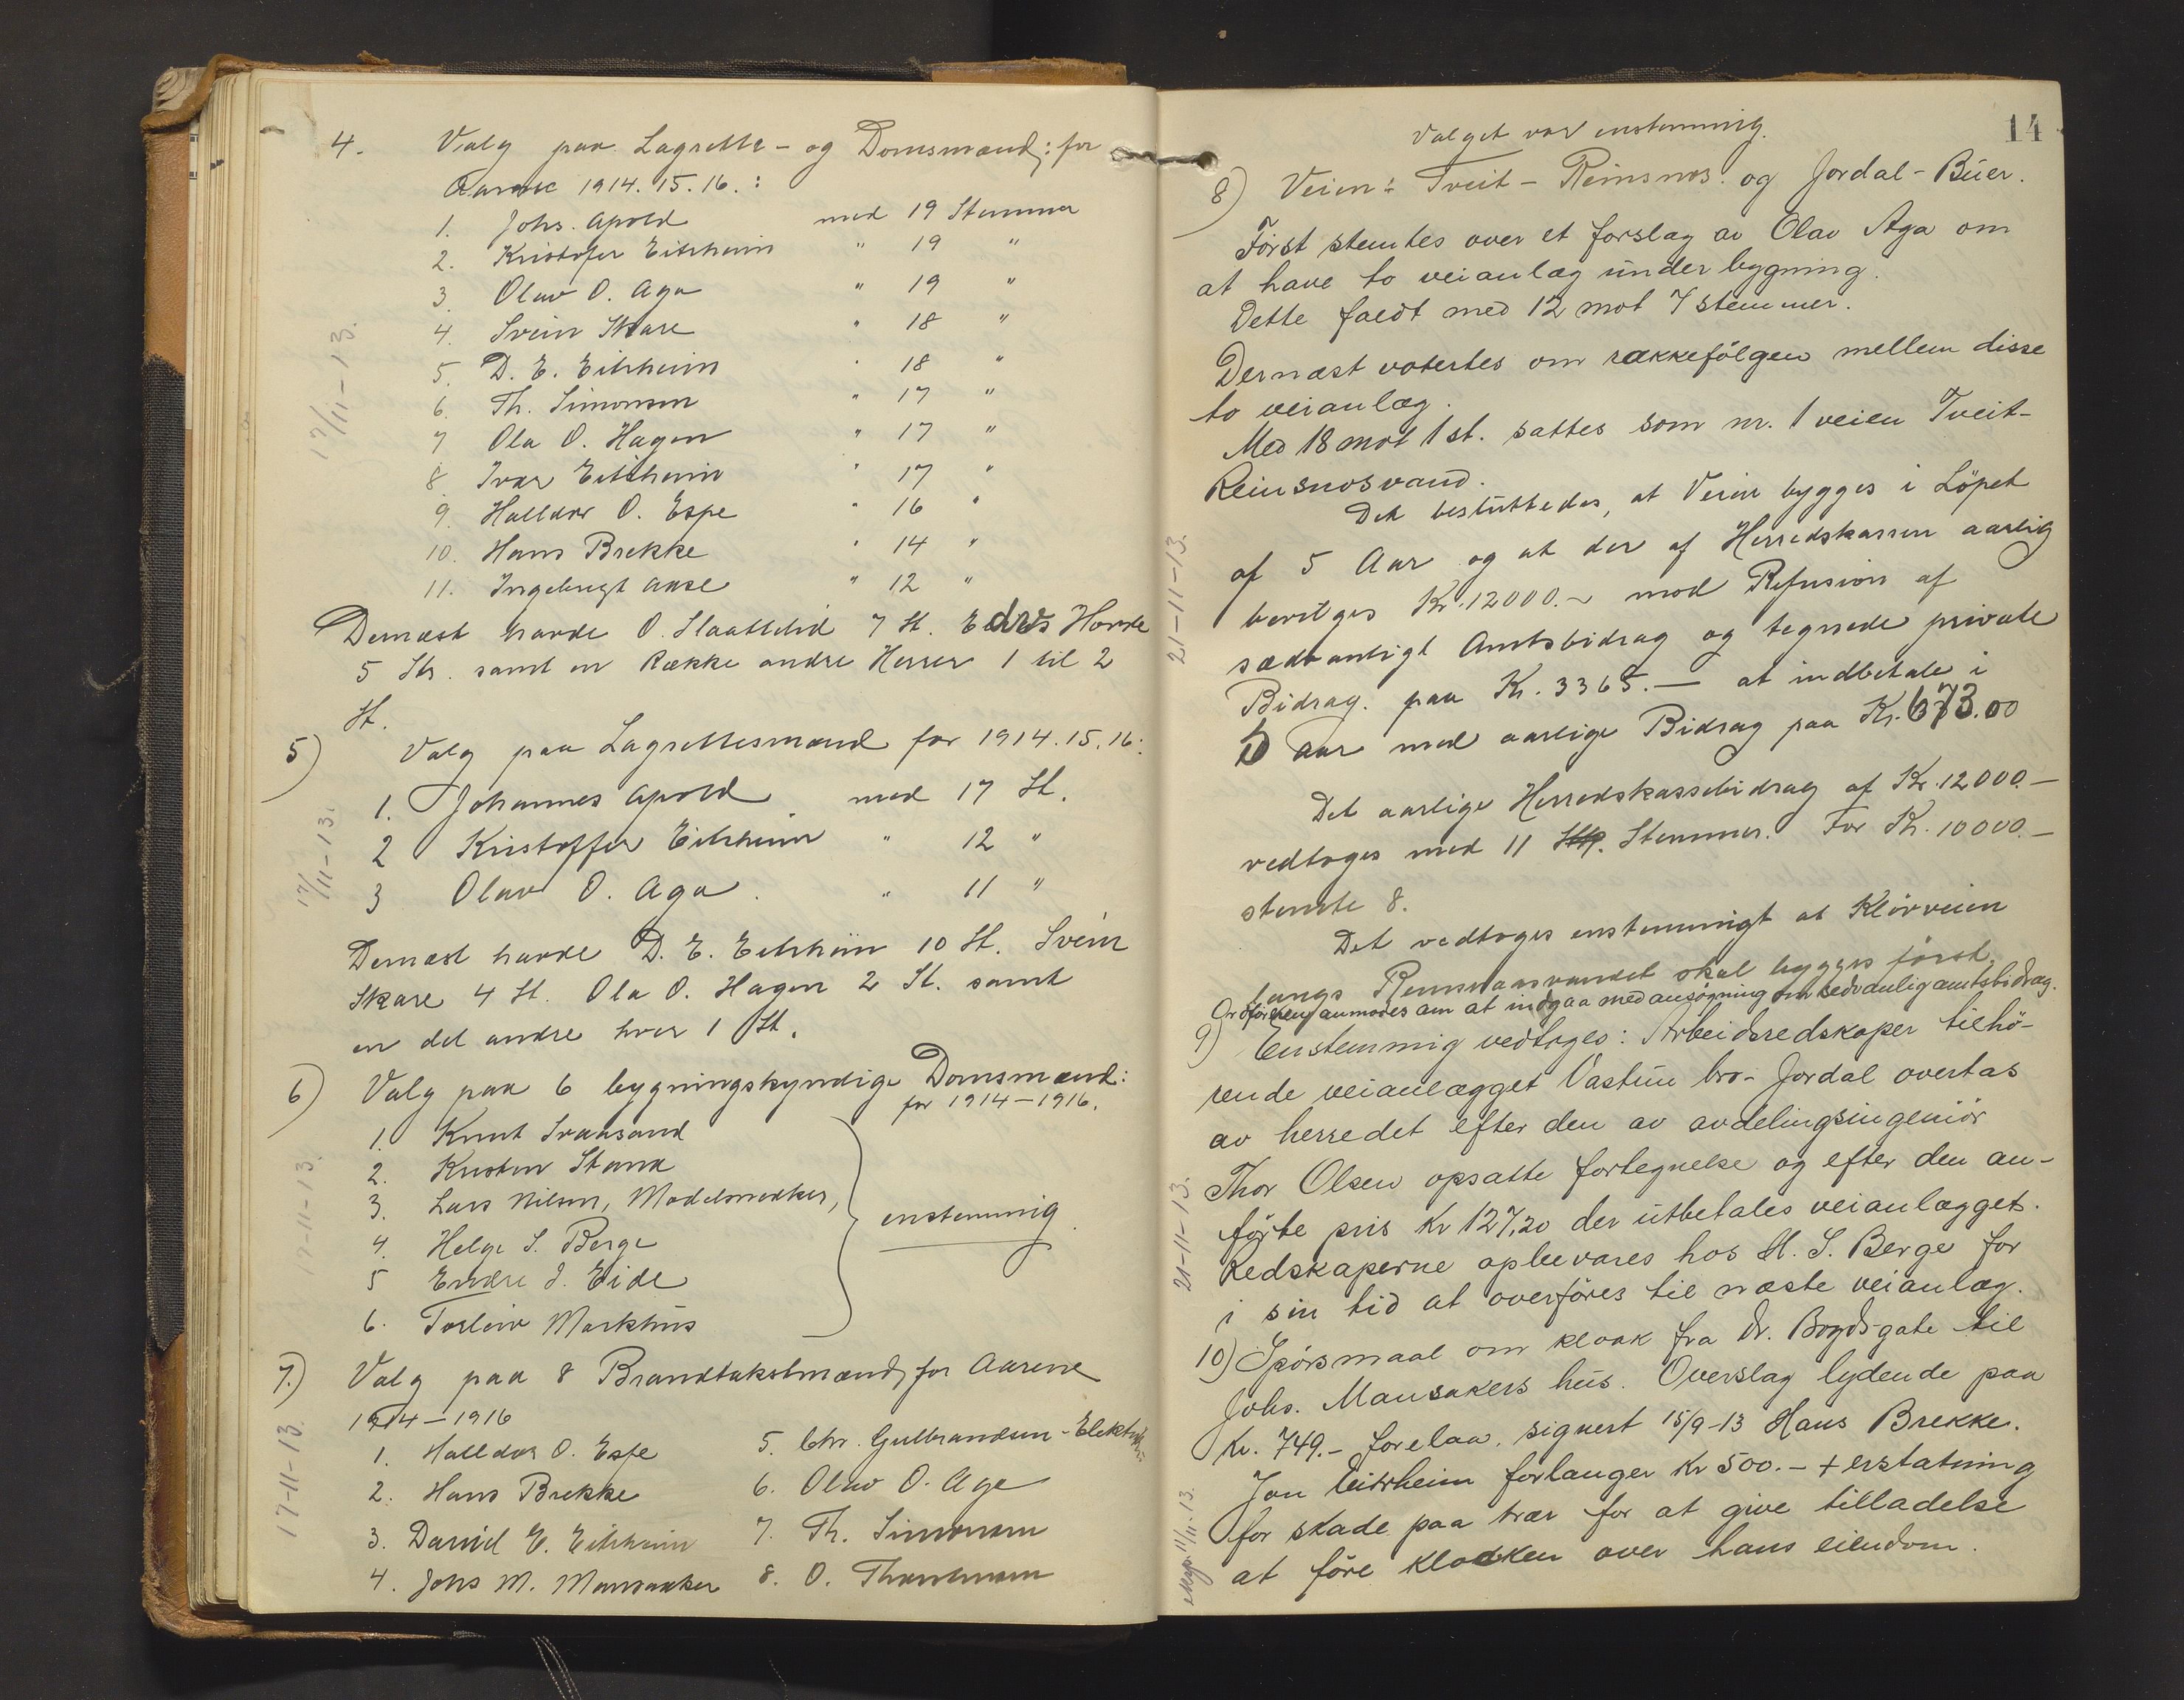 4. Valg paa Lagrette- og Domsmænd: for
Aarene 1914. 15. 16. :
1. Johs. Apold med 19 Stemmer
2. Kristofer Eitrheim " 19 "
3. Olav O. Aga " 19 "
4. Svein Skare " 18 "
5. D. E. Eitrheim " 18 "
6. Th. Simonsen " 17 "
7 Ola O. Hagen " 17 "
8. Ivar Eitrheim " 17 "
9. Halldor O. Espe " 16 "
10. Hans Brekke " 14 "
11. Ingebrigt Aase " 12 "
17/11-13.
Dernæst havde O. Slaattelid 7 St. Hovde
5 Str. samt en Række andre Herrer 1 til 2
St.
5) Valg paa Lagrettesmænd for 1914. 15. 16:
1. Johannes Apold med 17 St.
2 Kristoffer Eitrheim " 12 "
3 Olav O. Aga. " 11 "
17/11-13.
Dernæst havde D. E. Eitrheim 10 St. Svein
Skare 4 St. Ola O. Hagen 2 St. samt
en del andre hver 1 St.
6) Valg paa 6 bygningskyndige Domsmænd:
for 1914-1916.
1. Knut Svaasand
2. Kristen Stana
3. Lars Nilsen, Modelsnedker,
4. Helge S. Berge
5 Endre J. Eide
6. Torleiv Markhus
enstemmig
17-11-13.
7.) Valg paa 8 Brandtakstmænd for Aarene
1914-1916
1. Halldor O. Espe 5. Chr. Gulbrandsen -
2. Hans Brekke 6. Olav O. Aga
3. David E. Eitrheim 7. Th. Simonsen
4. Johs M. Mansaaker 8. O.
17-11-13.
14
Valget var enstemmig.
8) Veien: Tveit - Reinsnos. og Jordal - Buer.
Först stemtes over et forslag av Olav Aga om
at have to veianlæg under bygning.
Dette faldt med 12 mot 7 stemmer.
Dernæst votertes om rækkefölgen mellem disse
to veianlæg.
Med 18 mot 1 st. sattes som nr. 1 veien Tveit-
Reinsnosvand.
Det besluttedes, at Veien bygges i Löpet
af 5 Aar og at der af Herredskassen aarlig
bevilges Kr. 12000.- mod Refusion af
sædvanligt Amtsbidrag og tegnede private
Bidrag. paa Kr. 3365.- at indbetale i
5 Aar med aarlige Bidrag paa Kr. 673.00
21-11-13.
Det aarlige Herredskassebidrag af Kr. 12000.-
vedtoges med 11 Stemmer. For Kr. 10000.-
stemte 8.
Det vedtoges enstemmigt at Klövveien
langs Reinsnosvandet skal bygges först.
Ordföreren anmodes om at indgaa med ansögning om sedvanlig amtsbidrag.
9) Enstemmig vedtoges: Arbeidsredskaper tilhö-
rende veianlægget Vastun bro - Jordal overtas
av herredet efter den av avdelingsingeniör
Thor Olsen opsatte fortegnelse og efter den an-
förte pris Kr 127,20 der utbetales veianlægget.
Redskaperne opbevares hos H. S. Berge for
i sin tid at overföres til næste veianlæg.
21-11-13.
10) Spörsmaal om kloak fra Dr. Bøgds gate til
Johs. Mansakers hus. Overslag lydende paa
Kr. 749.- forelaa, signert 15/9-13 Hans Brekke.
Jon Eitrheim forlanger Kr 500.- + erstatning
for skade paa trær for at give tilladelse
at före kloakken over hans eiendom.
11/11.13.